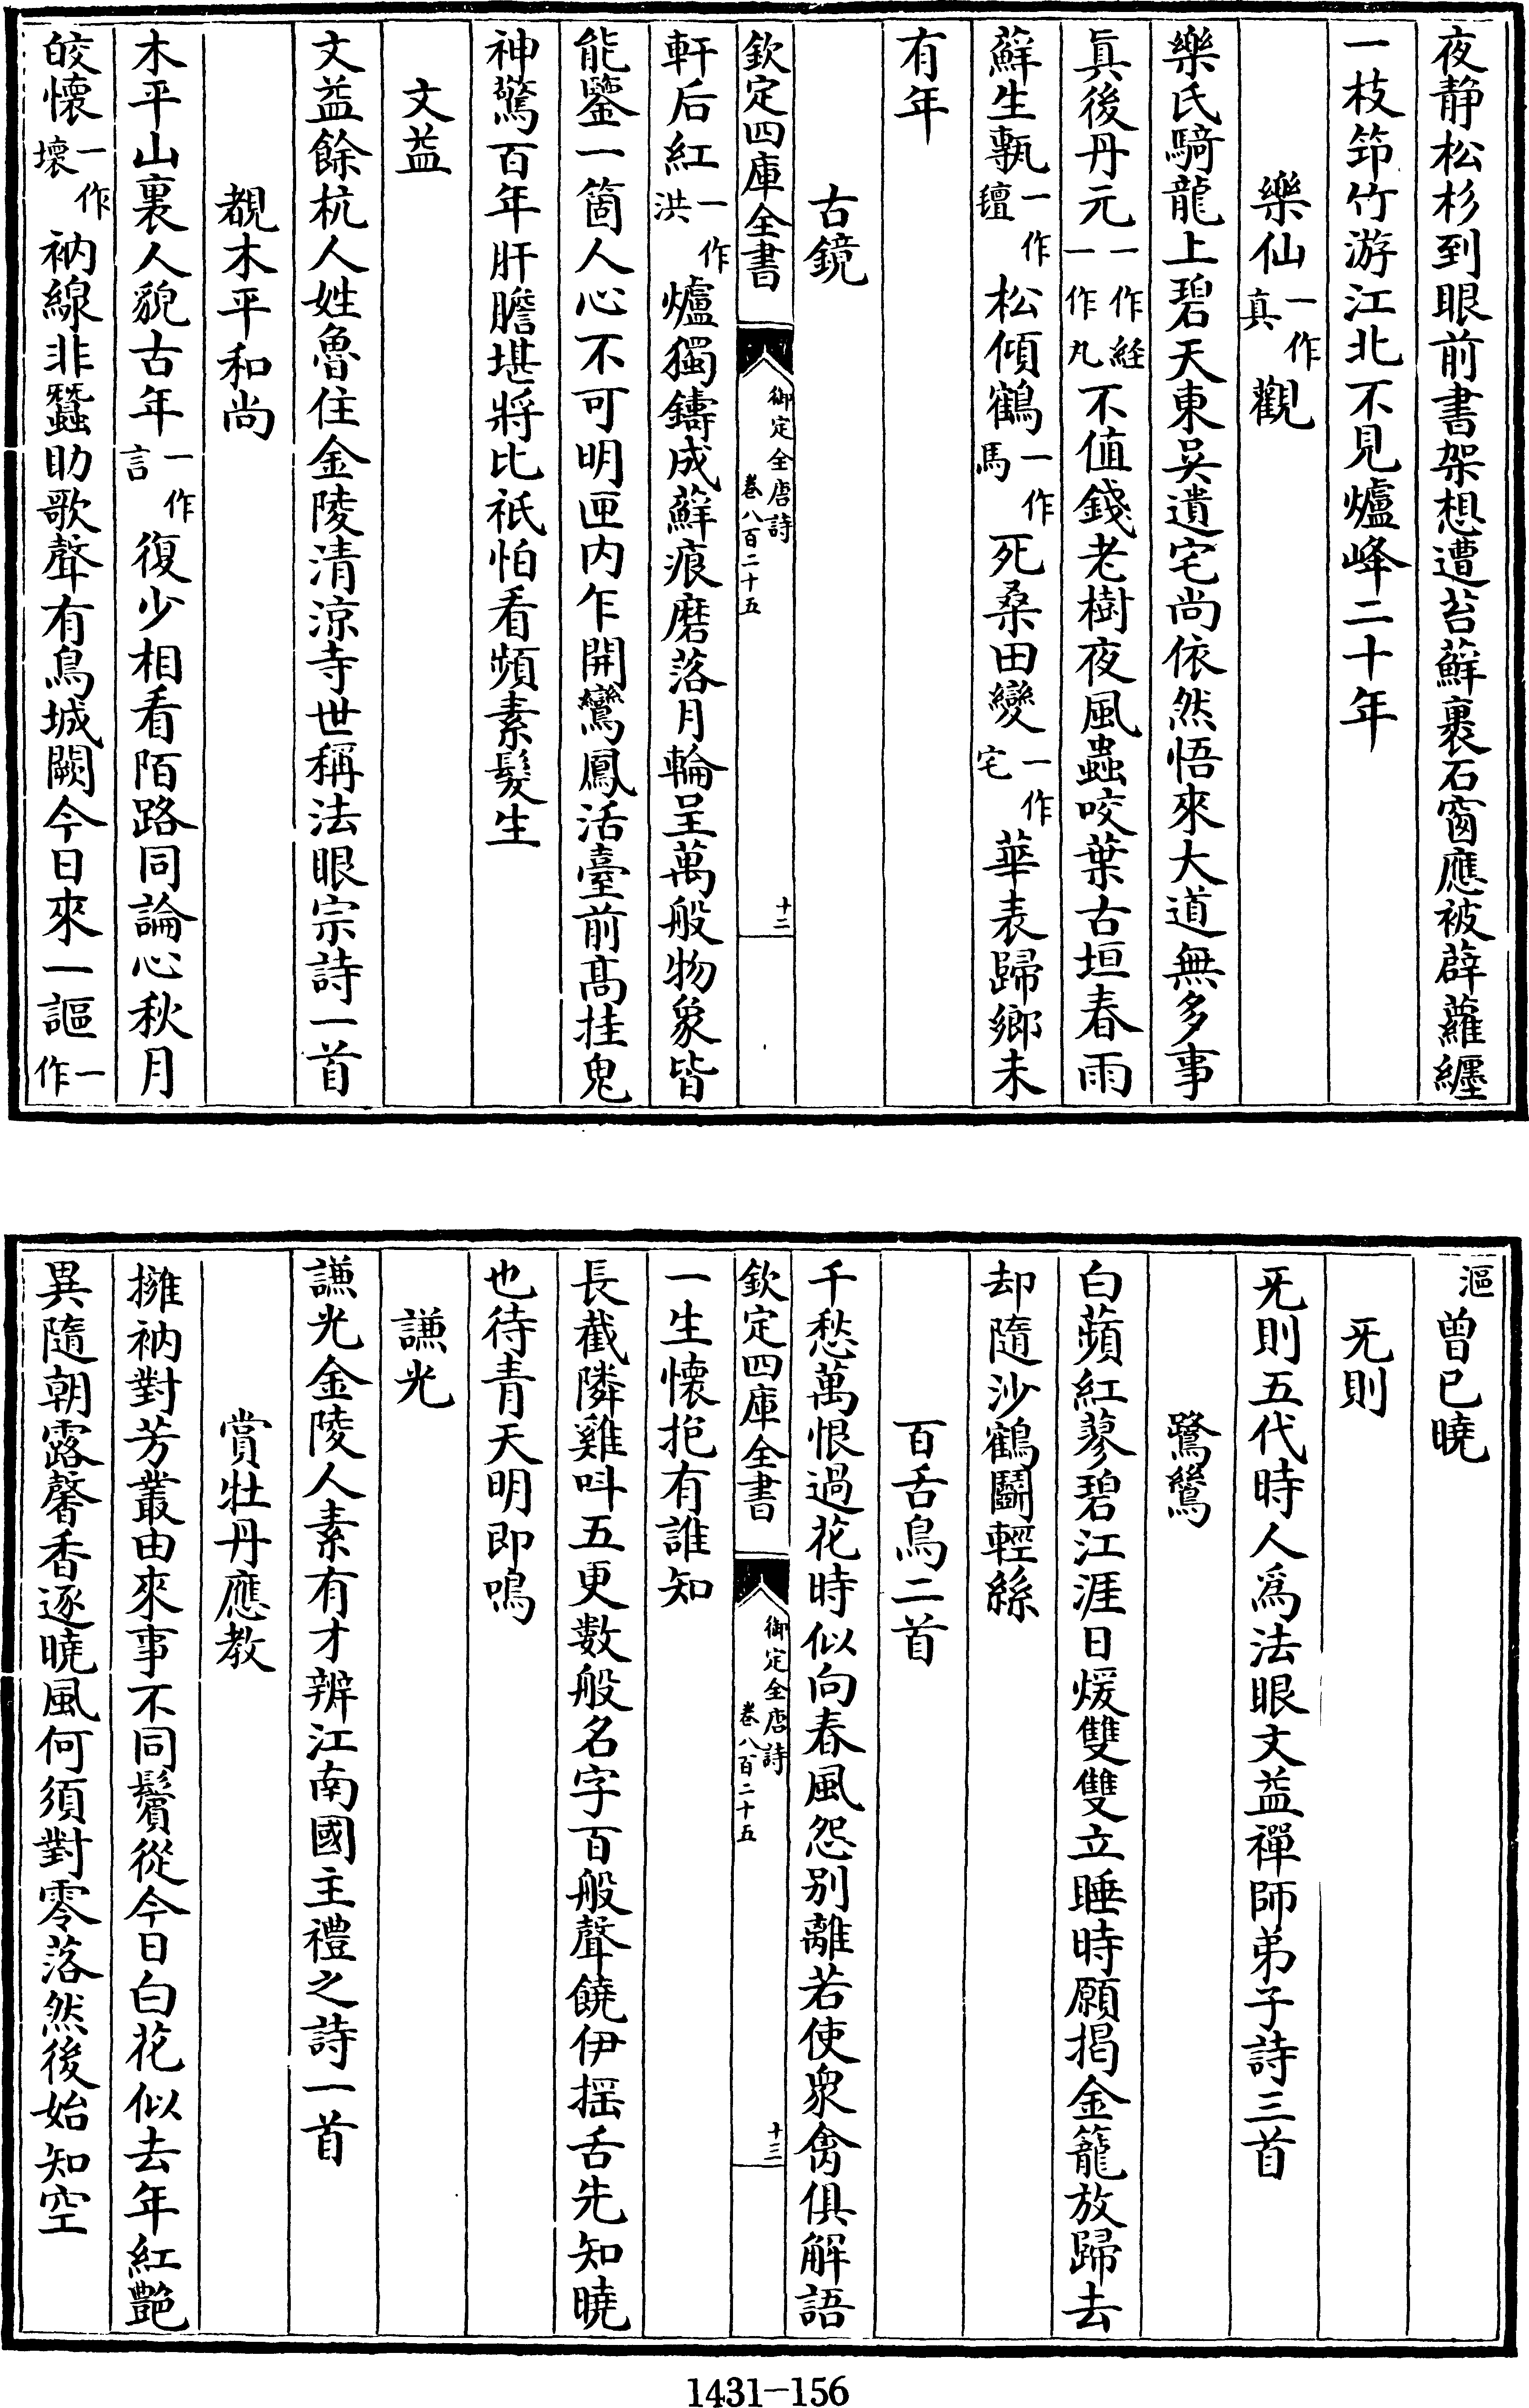 夜静松杉到眼前書架想遭苔蘚裹石窗應被薜蘿纒
一枝笻竹游江北不見爐峰二十年
樂仙一作真觀
樂氏騎龍上碧天東吳遺宅尚依然悟來大道無多事
真後丹元一作經一作丸不值錢老樹夜風蟲咬葉古垣春雨
蘚生甎一作壇松傾鶴一作馬死桑田變一作宅華表歸鄉未
有年
古鏡
欽定四庫全書
御定全唐詩
卷八百二十五
十二
軒后紅一作洪爐獨鑄成蘚痕磨落月輪呈萬般物象皆
能鑒一箇人心不可明匣内乍開鸞鳳活臺前髙挂鬼
神驚百年肝膽堪將比祇怕看頻素髮生
文益
文益餘杭人姓魯住金陵清涼寺世稱法眼宗詩一首
覩木平和尚
木平山裏人貌古年一作言復少相看陌路同論心秋月
皎懷一作壞衲線非蠶助歌聲有鳥城闕今日來一謳一作
漚曾已曉
旡則
旡則五代時人爲法眼文益禪師弟子詩三首
鷺鷥
白蘋紅蓼碧江涯日煖雙雙立睡時願揭金籠放歸去
却隨沙鶴鬭輕絲
百舌鳥二首
千愁萬恨過花時似向春風怨别離若使衆禽俱解語
欽定四庫全書
御定全唐詩
卷八百二十五
十三
一生懷抱有誰知
長截隣雞叫五更數般名字百般聲饒伊摇舌先知曉
也待青天明即鳴
謙光
謙光金陵人素有才辨江南國主禮之詩一首
賞牡丹應教
擁衲對芳叢由來事不同鬢從今日白花似去年紅艶
異隨朝露馨香逐曉風何須對零落然後始知空
1431-156